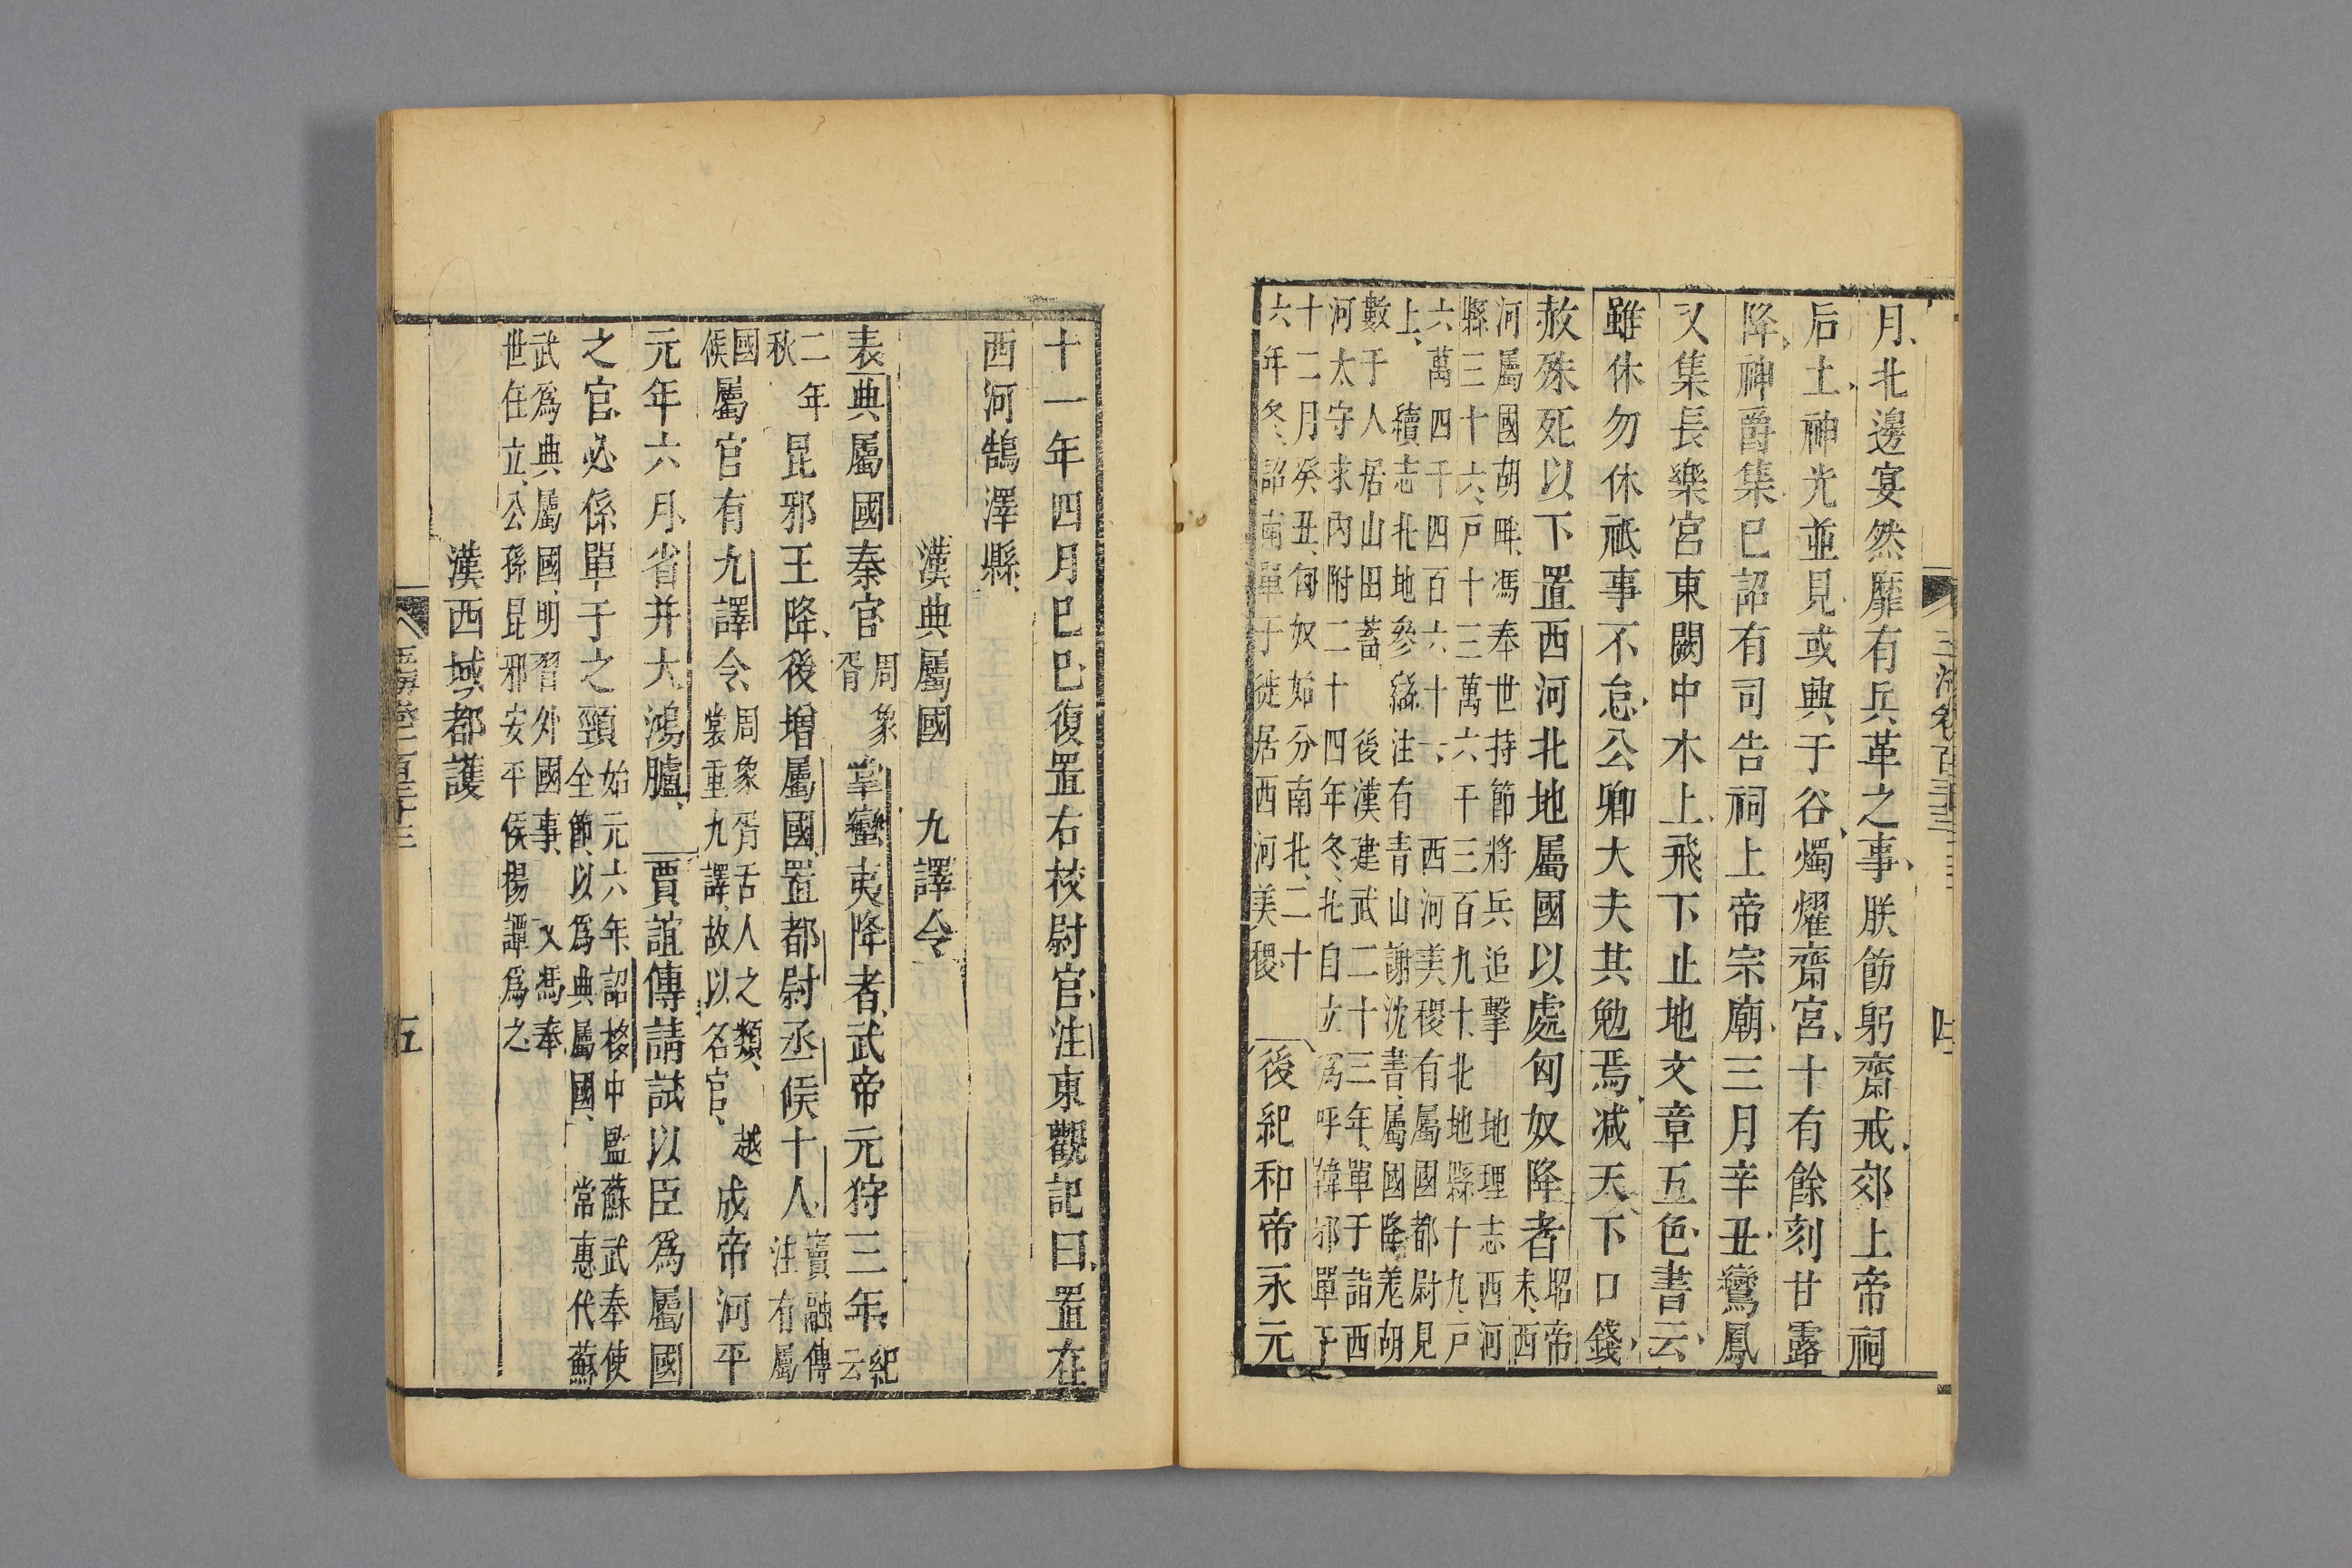 月北邊宴然靡有兵革之事朕飭躬齋戒郊上帝祠
后土神光並見或興于谷燭燿齋宮十有餘刻甘露
降神爵集已詔有司告祠上帝宗廟三月辛丑鸞鳳
又集長樂宮東闕中木上飛下止地文章五色書云
雖休勿休祗事不怠公卿大夫其勉焉減天下口錢
赦殊死以下置西河北地屬國以處匈奴降者昭帝
末西
河屬國胡畔馮奉世持節將兵追擊 地理志西河
縣三十六戶十三萬六千三百九十北地縣十九戶
六萬四千四百六十一 西河美稷有屬國都尉見
上 續志北地參䜌注有青山謝沈書屬國降羌胡
數千人居山田蓄 後漢建武二十三年單于詣西
河太守求內附二十四年冬北自立爲呼韓邪單于
十二月癸丑匈奴始分南北二十
六年冬詔南單于徙居西河美稷
後紀和帝永元
十一年四月巳巳復置右校尉官注東觀記曰置在
西河鵠澤縣
漢典屬國 九譯令
表典屬國秦官周象
胥掌蠻夷降者武帝元狩三年紀
云
二年
秋昆邪王降後增屬國置都尉丞候十人竇融傳
注有屬
國
候屬官有九譯令周象胥舌人之類 越
裳重九譯故以名官成帝河平
元年六月省并大鴻臚賈誼傳請試以臣爲屬國
之官必係單于之頸始元六年詔栘中監蘇武奉使
全節以爲典屬國 常惠代蘇
武爲典屬國明習外國事 又馮奉
世任立公孫昆邪安平侯楊譚爲之
漢西域都護
五